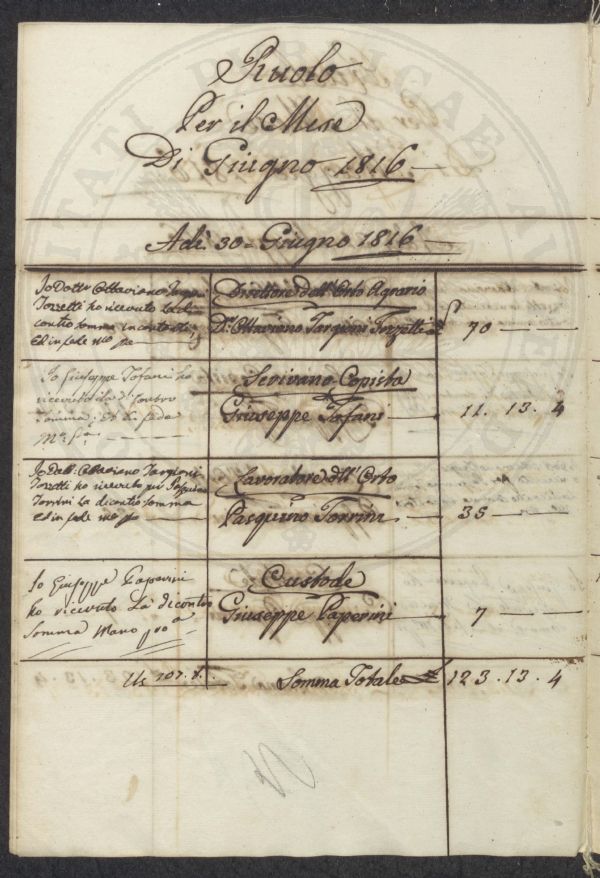 Ruolo
Per il Mese
Di Giugno 1816
Adì 30 Giugno 1816
Io Dottr Ottaviano Targioni
Tozzetti ho ricevuto la di
contro somma in contanti
ed in fede mo ppa
Direttore dell'Orto Agrario
Dr. Ottaviano Targioni Tozzetti £ 70 — —
Io Giuseppe Tofani ho
ricevuto la di contro
somma ed in fede
Mo. Pa.
Scrivano Copista
Giuseppe Tofani — 11. 13. 4
Io Dott. Ottaviano Targioni
Tozzetti ho ricevuto per Pasquino
Torrini la di contro somma
ed in fede mo ppa
Lavoratore dell' Orto
Pasquino Torrini — 35 — —
Io Giuseppe Paperini
ho ricevuto la di contro
somma mano proa
Custode
Giuseppe Paperini — 7 — —
Somma Totale £ 123. 13. 4